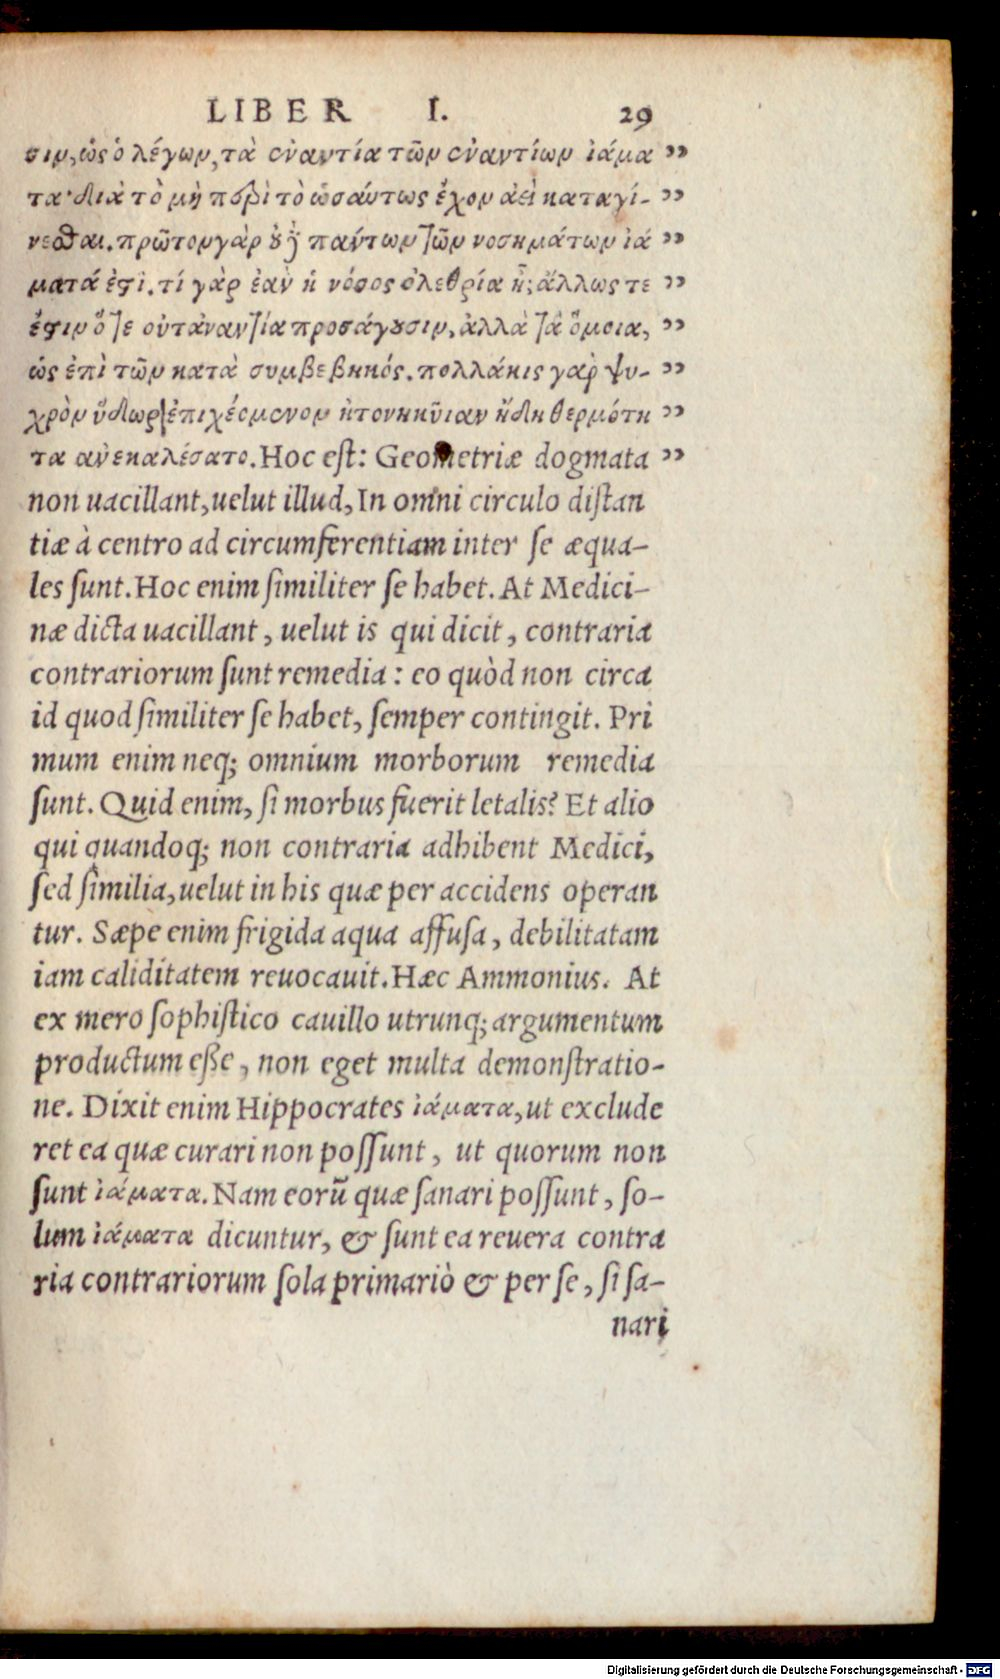 LIBER I. 29
σιν, ὡς ὁ λέγων, τὰ ἐναντία τῶν ἐναντίων ἰάμα „
τα· διὰ τὸ μὴ περὶ τὸ ὡσαύτως ἔχον ἀεὶ καταγί- „
νεσθαι. πρῶτον γὰρ οὐδὲ πάντων τῶν νοσημάτων ἰά „
ματά ἐστι. τί γὰρ ἐὰν ἡ νόσος ὀλεθρία ᾖ; ἄλλως τε „
ἔστιν ὅτε οὐ τἀναντία προσάγουσιν, ἀλλὰ τὰ ὅμοια, „
ὡς ἐπὶ τῶν κατὰ συμβεβηκός. πολλάκις γὰρ ψυ- „
χρὸν ὕδωρ ἐπιχεόμενον ἠτονηκῦιαν ἤδη θερμότη „
τα ἀνεκαλέσατο. Hoc est: Geometriæ dogmata „
non uacillant, uelut illud, In omni circulo distan
tiæ à centro ad circumferentiam inter se æqua-
les sunt. Hoc enim similiter se habet. At Medici-
næ dicta uacillant, uelut is qui dicit, contraria
contrariorum sunt remedia: eo quòd non circa
id quod similiter se habet, semper contingit. Pri
mum enim neq; omnium morborum remedia
sunt. Quid enim, si morbus fuerit letalis? Et alio
qui quandoq; non contraria adhibent Medici,
sed similia, uelut in his quæ per accidens operan
tur. Sæpe enim frigida aqua affusa, debilitatam
iam caliditatem reuocauit. Hæc Ammonius. At
ex mero sophistico cauillo utrunq; argumentum
productum eße, non eget multa demonstratio-
ne. Dixit enim Hippocrates ἰάματα, ut exclude
ret ea quæ curari non possunt, ut quorum non
sunt ἰάματα. Nam eorũ quæ sanari possunt, so-
lum ἰάματα dicuntur, & sunt ea reuera contra
ria contrariorum sola primariò & per se, si sa-
nari
Digitalisierung gefördert durch die Deutsche Forschungsgemeinschaft - DFG